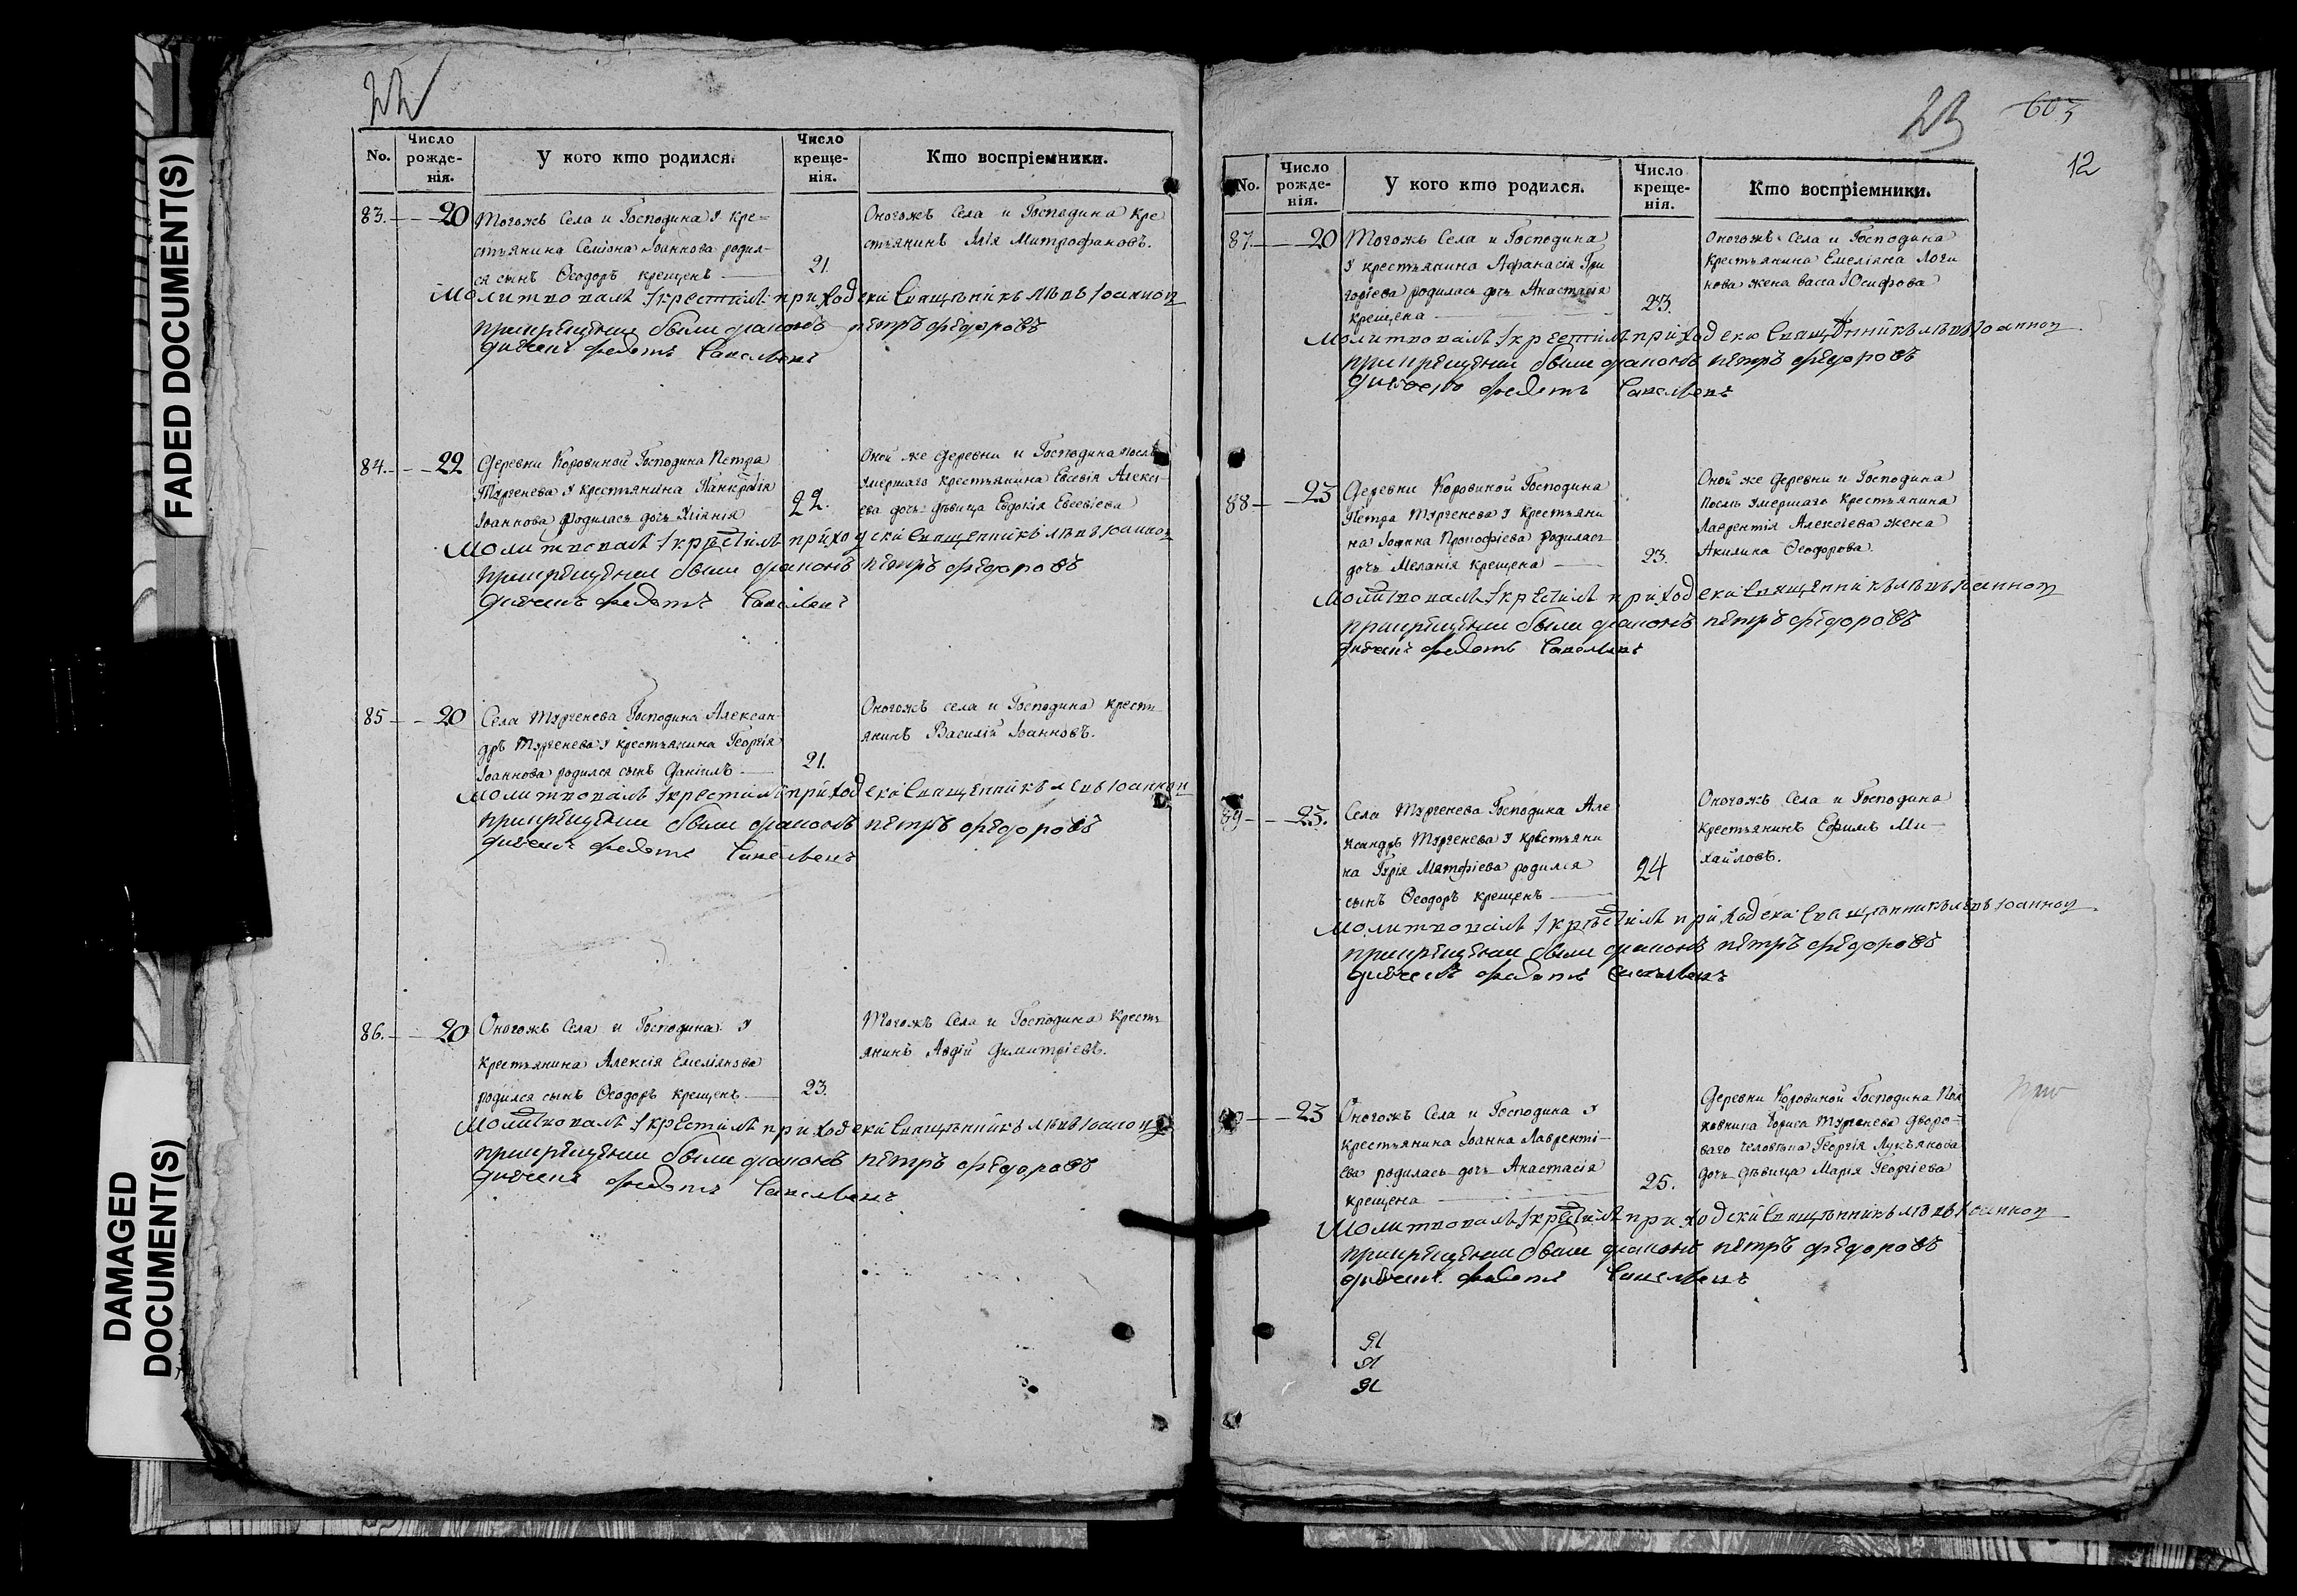 FADED DOCUMENT(S)
DAMAGED
DOCUMENT(S)
22
No.
Число
рожде-
нія.
У кого кто родился.
Число
креще-
нія.
Кто воспріемники.
83. 20 Тогожъ Села и Господина У кре=
стьянина Семіона Іоаннова родил-
ся сынъ Ѳеодоръ крещенъ
21.
Оногожъ Села и Господина Кре
стьянинъ Илія Митрофановъ.
Молитвовалъ Iкрестилъ приходски Священникъ Левъ Iоаннов
прикрещении были диаконъ петръ федоровъ
дьячекъ федотъ Савельевъ
84. 22 Деревни Коровиной Господина Петра
Тургенева У крестьянина Панкратія
Іоаннова родилась дочь Уліянія
22.
Оной же Деревни и Господина После
умершаго Крестьянина Евсевія Алексі-
ева дочь дѣвица Евдокія Евсевіева
Молитвовалъ Iкрестилъ приходски Священникъ Левъ Iоаннов
прикрещении были диаконъ петръ федоровъ
дьячекъ федотъ Савельевъ
85 20 Села Тургенева Господина Алексан-
дръ Тургенева У крестьянина Георгія
Іоаннова родился сынъ Даніилъ
21.
Оногожъ села и Господина крестъ
янинъ Василій Іоанновъ.
Молитвовалъ Iкрестилъ приходски Священникъ Левъ Iоаннов
прикрещении были диаконъ петръ федоровъ
дьячекъ федотъ Савельевъ
86. 20 Оногожъ Села и Господина У
крестьянина Алексія Емеліянова
родился сынъ Ѳеодоръ крещенъ
23.
Тогожъ Села и Господина Крестъ
янинъ Авдій Димитріевъ.
Молитвовалъ Iкрестилъ приходски Священникъ Левъ Iоаннов
прикрещении были диаконъ петръ федоровъ
дьячекъ федотъ Савельевъ
23
603
12
No.
Число
рожде-
нія.
У кого кто родился.
Число
креще-
нія.
Кто воспріемники.
87. 20 Тогожъ Села и Господина
У крестьянина Афанасія Гри
горіева родилась дочь Анастасія
крещена
23.
Оногожъ Села и Господина
Крестьянина Емеліяна Логи
нова жена васса Іосифова
Молитвовалъ Iкрестилъ приходски Священникъ Левъ Iоаннов
прикрещении были диаконъ петръ федоровъ
дьячекъ федотъ Савельевъ
88 23 Деревни Коровиной Господина
Петра Тургенева У Крестьяни
на Іоанна Прокофіева родилась
дочь Меланія крещена
23.
Оной же Деревни и Господина
После умершаго Крестьянина
Лаврентія Алексіева жена
Акилина Ѳеодорова.
Молитвовалъ Iкрестилъ приходски Священникъ Левъ Iоаннов
прикрещении были диаконъ петръ федоровъ
дьячекъ федотъ Савельевъ
89 23. Села Тургенева Господина Але
ксандръ Тургенева У крестьяни
на Гурія Матфіева родился
сынъ Ѳеодоръ крещенъ
24
Оногожъ Села и Господина
Крестьянинъ Ефимъ Ми-
хайловъ.
Молитвовалъ Iкрестилъ приходски Священникъ Левъ Iоаннов
прикрещении были диаконъ петръ федоровъ
дьячекъ федотъ Савельевъ
23 Оногожъ Села и Господина У
крестьянина Іоанна Лавренті-
ева родилась дочь Анастасія
крещена
25.
Деревни Коровиной Господина Пол
ковника Бориса Тургенева дворо-
ваго человѣка Георгія Лукъянова
дочь дѣвица Марія Георгіева
Молитвовалъ Iкрестилъ приходски Священникъ Левъ Iоаннов
прикрещении были диаконъ петръ федоровъ
дьячекъ федотъ Савельевъ
91
91
91